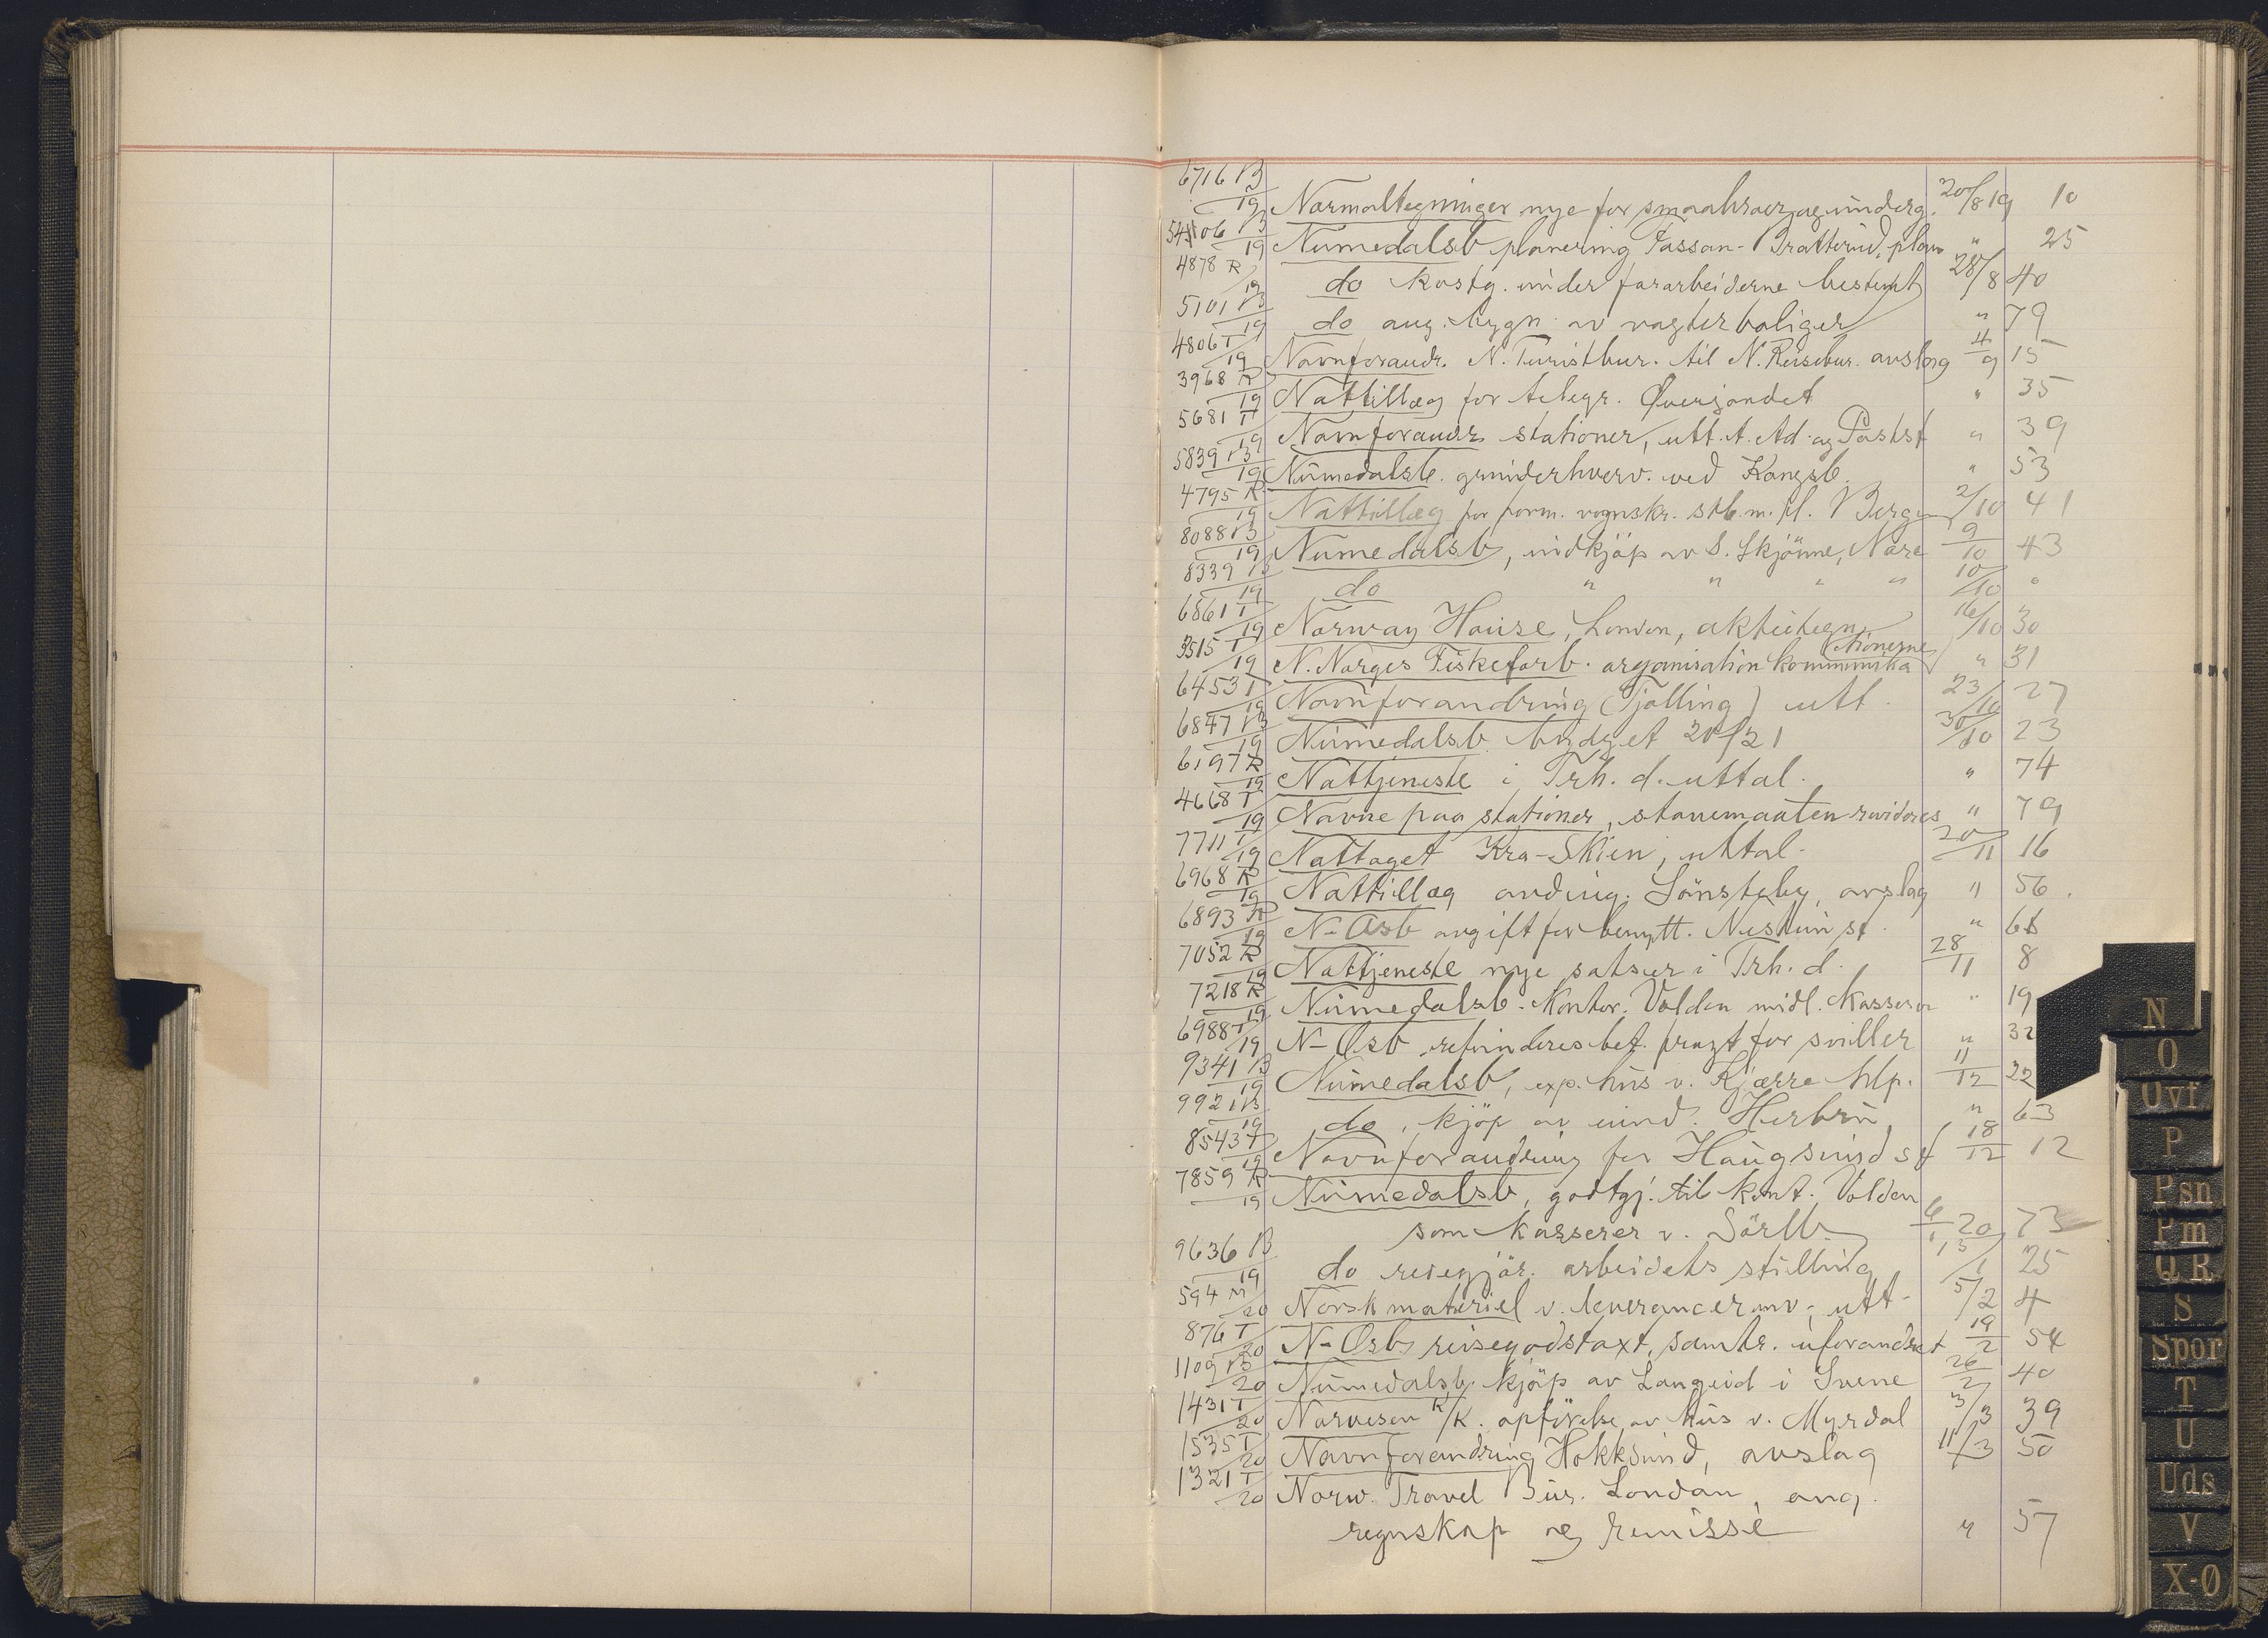 6716 B/19 Normaltegninger nye for smaabroer og underg. 20/8 19 10
5406 B/19 Numedalsb planering Passan - Bratterud, plan " 25
4878 R/19 do kostg. under forarbeiderne bestemt 28/8 40
5101 B/19 do ang. bygn. av vogterboliger " 79
4806 T/19 Navnforandr. N. Turistbur. til N. Reisebur. avslag 4/9 15
3968 R/19 Nattillæg for telegr. Øverjordet " 35
5681 T/19 Navnforandr stationer, utt. t. Ad. og Postst " 39
5839 B/19 Numedalsb. grunderhverv. ved Kongsb. " 53
4795 R/19 Nattillæg for form. vognskr. stb. m. fl. Bergen 2/10 41
8088 B/19 Numedalsb, indkjøp av S. Skjönne, Nore 9/10 43
8339 B/19 do " " " " 10/10 "
6861 T/19 Norway House, London, aktietegn. 16/10 30
3515 T/19 N. Norges Fiskeforb. organisation kommunika tionerne " 31
6453 T/19 Navnforandring (Tjølling) utt. 23/10 27
6847 B/19 Numedalsb. budget 20/21 30/10 23
6197 R/19 Nattjeneste i Trh. d. uttal. " 74
4668 T/19 Navne paa stationer, stavemaaten revideres " 79
7711 T/19 Nattoget Kra-Skien, uttal. 20/11 16
6968 R/19 Nattillæg anding. Lönsteby, avslag " 56
6893 R/19 N-Osb avgift for benytt. Nestun st. " 68
7052 R/19 Nattjeneste nye satser i Trh. d. 28/11 8
7218 R/19 Numedalsb. Kontor. Volden midl. Kasserer " 19
6988 T/19 N-Osb refunderes bet. fragt for sviller " 32
9341 B/19 Numedalsb, exp. hus v. Kjærre hlp. 11/12 22
9921 B/19 do, kjøp av eiend. Herbru " 63
8543 T/19 Navnforandring for Haugsund st 18/12 12
7859 R/19 Numedalsb, godtgj. til kont. Volden
som kasserer v. Sörlb. 6/1 20 73
9636 B/19 do redegjör. arbeidets stilling 15/1 25
594 M/20 Norsk materiel v. leverancer anv., utt. 5/2 4
876 T/20 N-Osb reisegodstaxt, samtr. uforandret 19/2 54
1109 B/20 Numedalsb, kjøp av Langeid i Svene 26/2 40
1431 T/20 Narvesen K/K. opførelse av hus v. Myrdal 3/3 39
1535 T/20 Navnforandring Hokksund, avslag 11/3 50
1321 T/20 Norw. Travel Bur. London, ang.
regnskap og remisse " 57
N
O
Ovf
P
Psn
Pm
Q R
S
Spor
T
U
Uds
V
X-Ø